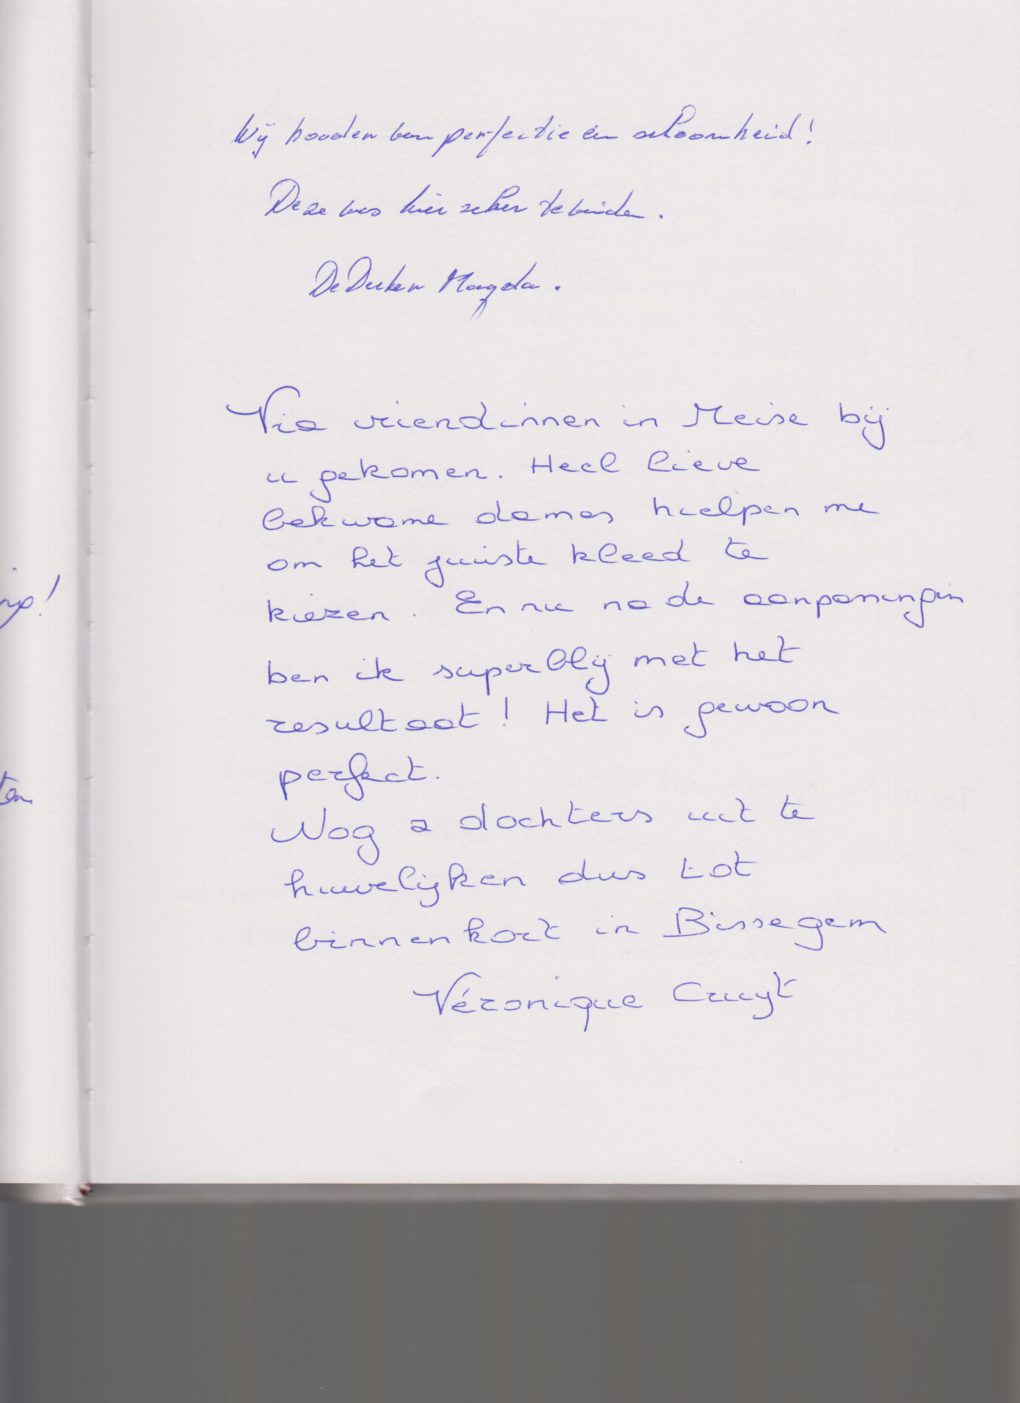 Wij houden van perfectie en schoonheid!
Deze was hier zeker te vinden.
Magda.
Via vriendinnen in Meise bij
u gekomen. Heel lieve
bekwame dames hielpen me
om het juiste kleed te
kiezen. En nu na de aanpassingen
ben ik superblij met het
resultaat! Het is gewoon
perfect.
Nog 2 dochters uit te
huwelijken dus tot
binnenkort in Bissegem
Véronique Cruyt